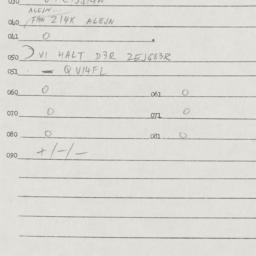 ALEJN
040 214K ALEJN
041 0
050 VI HALT D3R 2EJ683R
051 - QV14FL
060 0 061 0
070 0 071 0
080 0 081 0
090 +/-/-